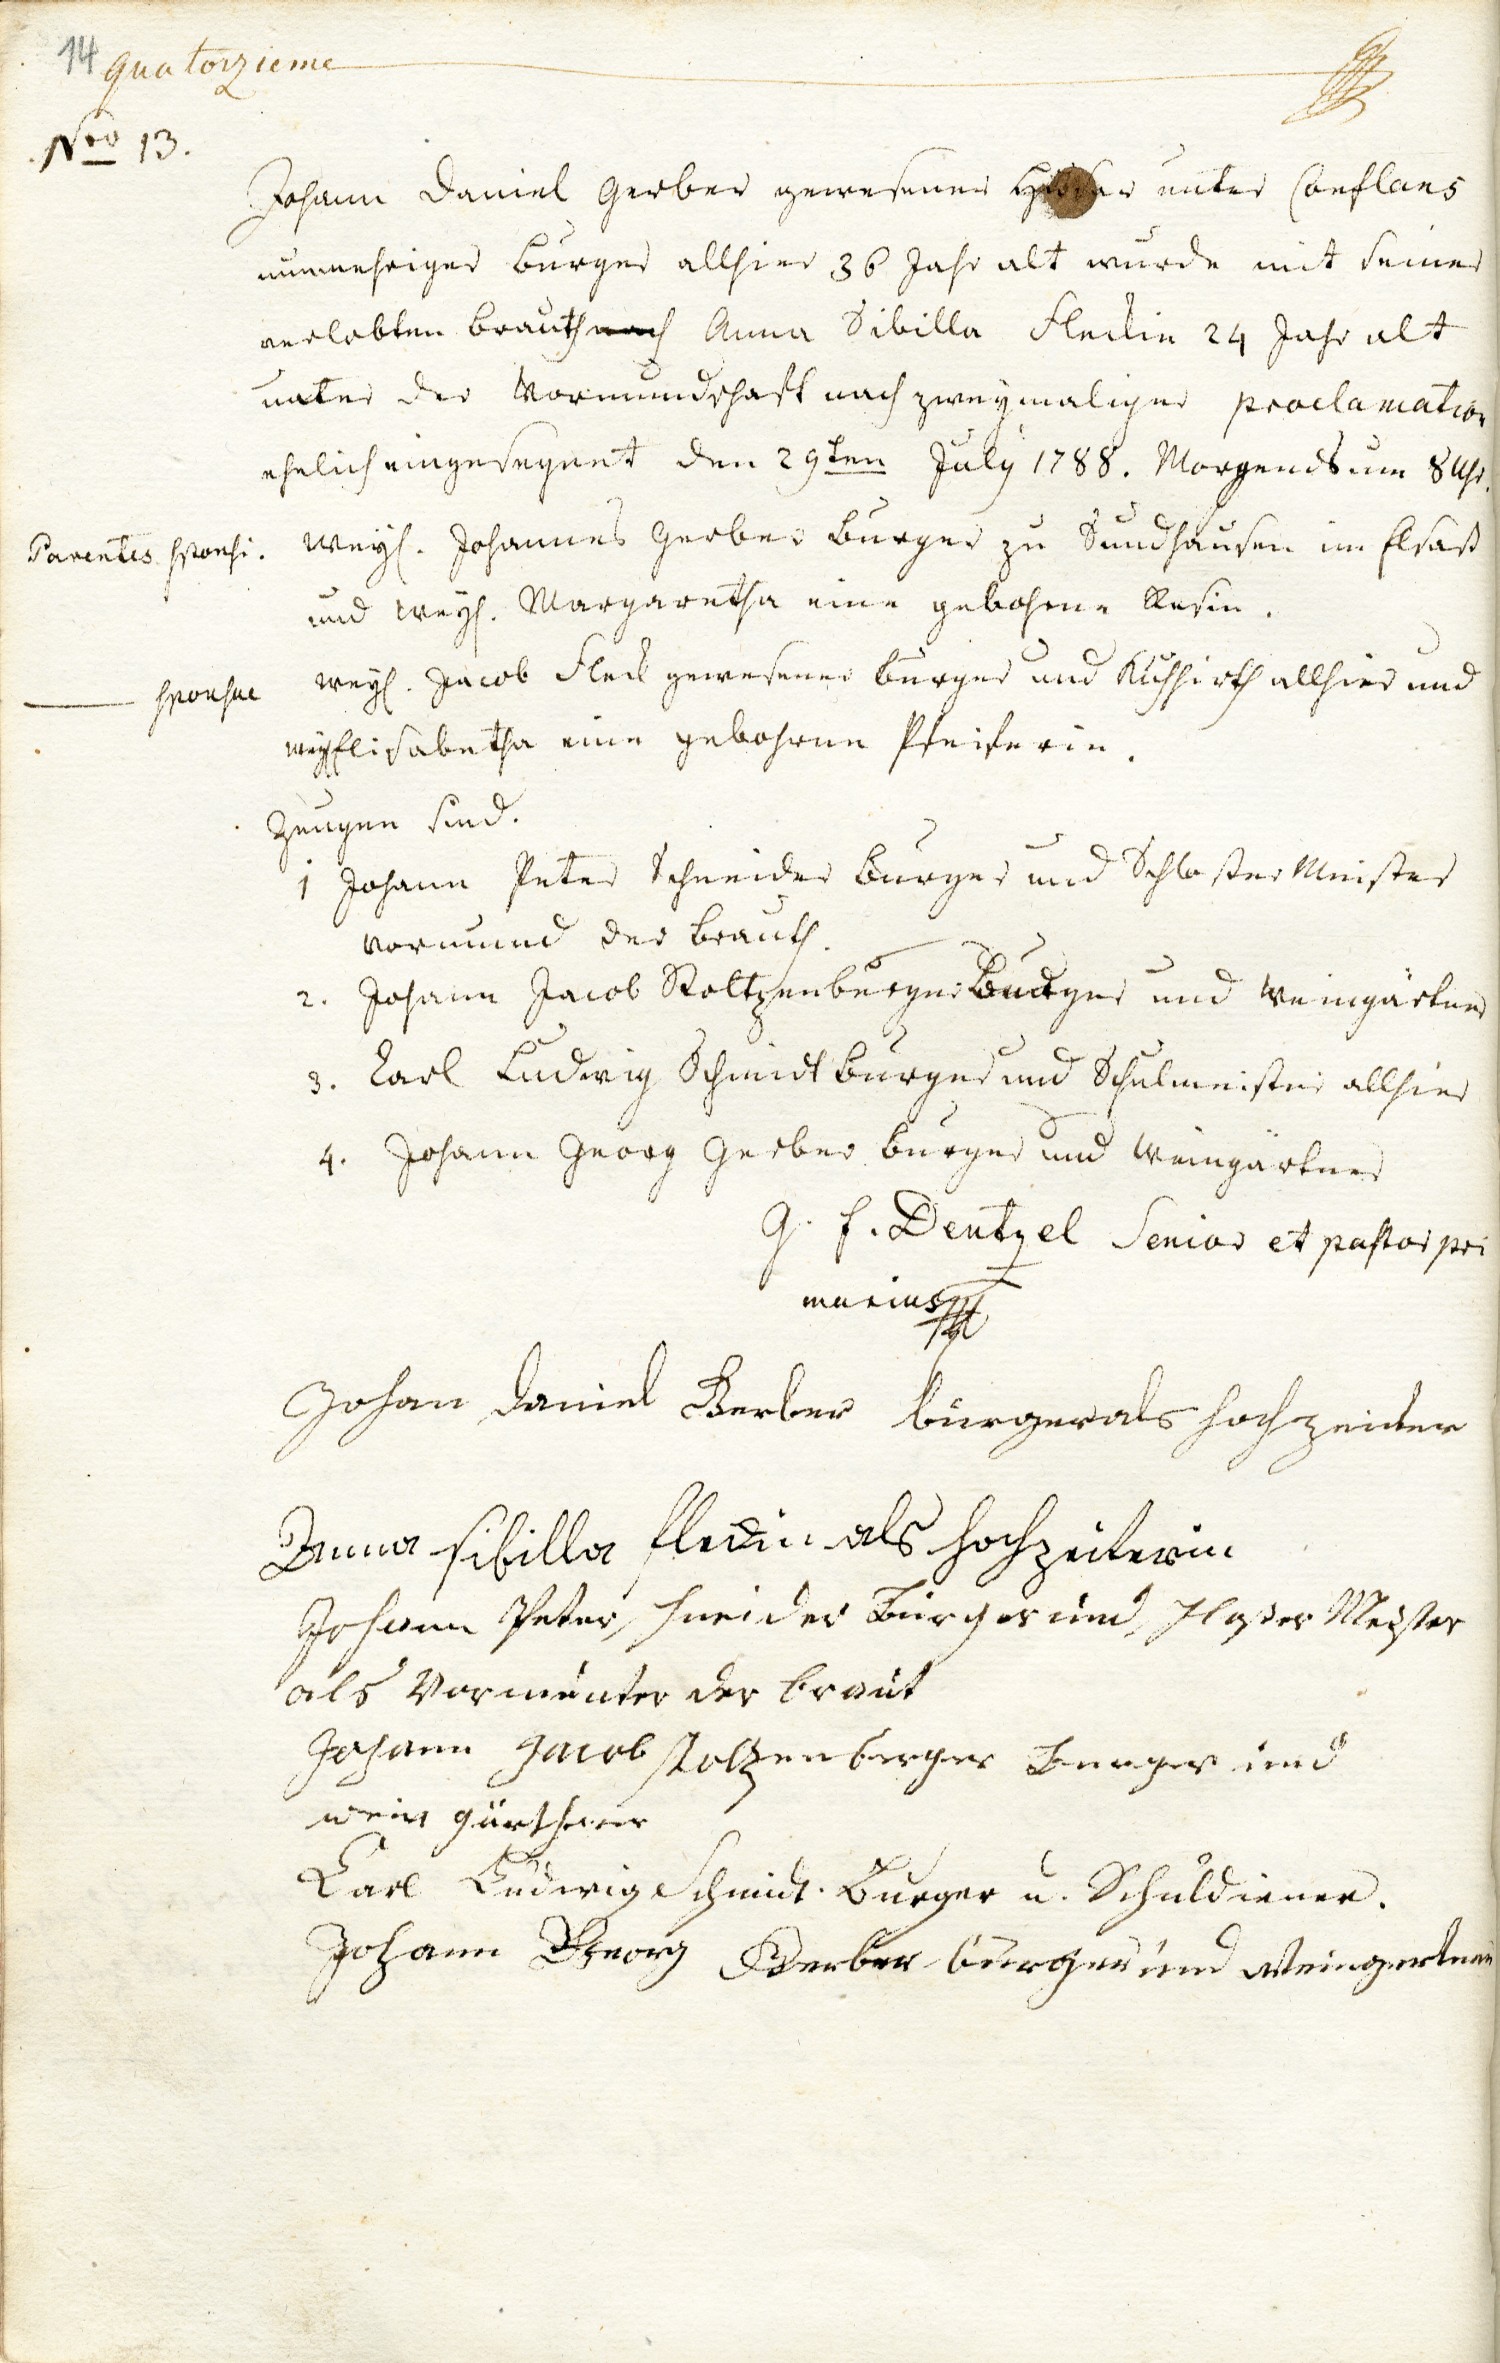 14 quatorzieme
Nro 13.
Johann Daniel Gerber gewesener unter Conflans
nunmehriger Burger allhier 36 Jahr alt wurde mit seiner
verlobten Brauth Anna Sibilla Fleckin 24 Jahr alt
unter der Vormundschaft nach zweymaliger proclamation
ehelich eingesegnet den 29ten July 1788. Morgends um 8 Uhr.
Parentes sponsi. weyl. Johannes Gerber Burger zu Sundhausen im Elsaß
und weyl. Margaretha eine gebohrne Resin.
sponsae weyl. Jacob Fleck gewesener Burger und Kuhhirth allhier und
weyl Elisabetha eine gebohrne Pfeiferin.
Zeugen sind.
1 Johann Peter Schneider Burger und Schlosser Meister
Vormund der Brauth.
2. Johann Jacob Stoltzenburger Burger und Weingärtner
3. Carl Ludwig Schmidt Burger und Schulmeister allhier
4. Johann Georg Gerber Burger und Weingärtner
G. F. Dentzel Senior et pastor pri
marius
Johan Daniel Gerber burger als hochzeider
Anna sibilla fleckin als hochzeiterin
Johann Peter schneider Burger und schlosser Meister
als Vormunter der braut
Johann Jacob stolzenberger Burger und
wein gärthner
Carl Ludwig Schmidt. Burger u. Schuldiener.
Johann Georg Gerber burger und Weingertner